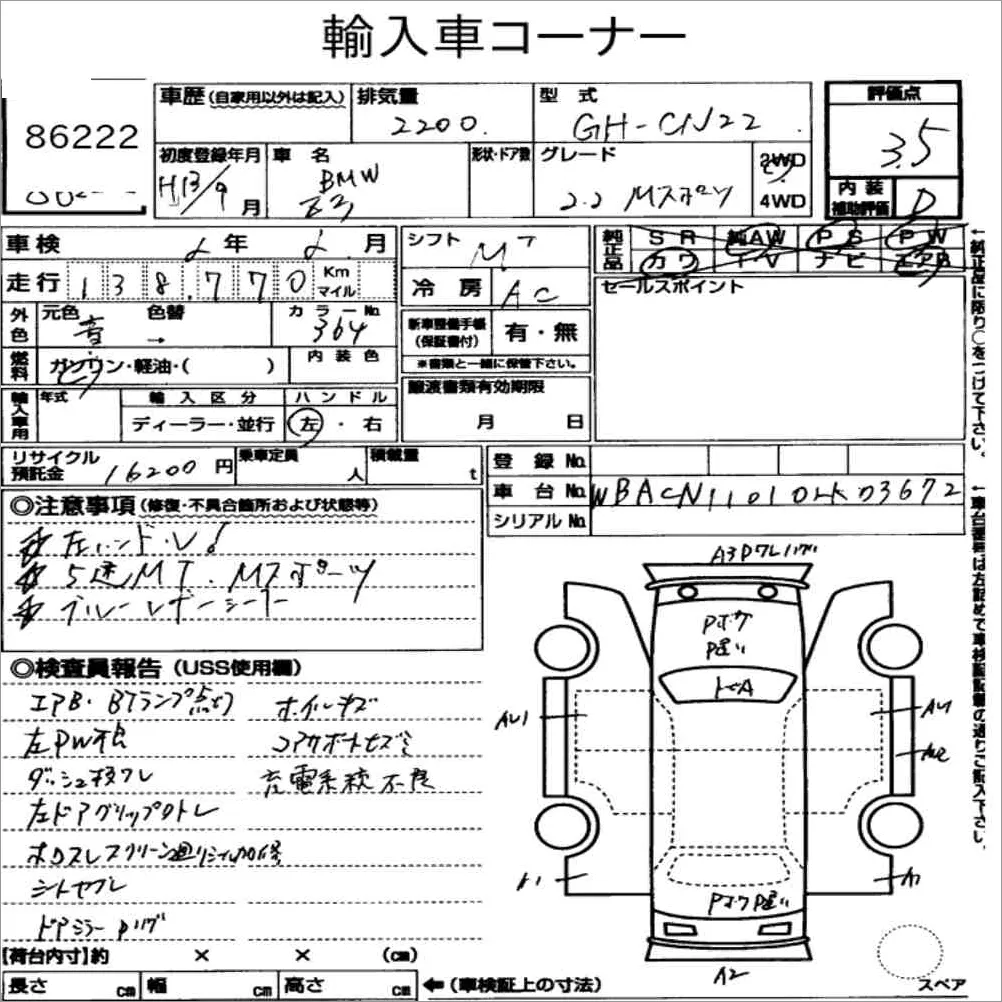 輸入車コーナー
86222
車歴(自家用以外は記入)
排気量
2200.
型式
GH-CN22
評価点
3.5
初度登録年月
H13/9月
車名
BMW
Z3
形状・ドア数
グレード
2.2 Mスポーツ
2WD
4WD
内装
補助評価
D
車検 年 月
シフト
MT
純正品
SR 純AW PS PW
カワ TV ナビ エアB
走行 138,770 Km マイル
冷房
AC
セールスポイント
外色
元色
青
色替
→
カラーNo.
364
新車整備手帳
(保証書付)
有・無
※書類と一緒に保管下さい。
燃料
ガソリン・軽油・( )
内装色
譲渡書類有効期限
月 日
輸入車用
年式
輸入区分
ディーラー・並行
ハンドル
左・右
リサイクル
預託金
16200円
乗車定員
人
積載量
t
登録No.
車台No.
WBACN11010LK03672
シリアルNo.
◎注意事項(修復・不具合箇所および状態等)
左ハンドル!
5速MT.Mスポーツ
ブルーレザーシート
◎検査員報告(USS使用欄)
エアB・BTランプ点灯
左PW不良
ダッシュ
左ドアグリップ
ホロスレスクリーン
シートヤブレ
ドアミラー
ホイルキズ
コアサポートキズ
充電系統不良
A3Pワレ
Pボケ
トビA
AU1
A1
A2
【荷台内寸】約 × × (cm)
長さ cm 幅 cm 高さ cm
←(車検証上の寸法)
スペア
↑純正品に限り○をつけて下さい。
↑車台番号は左詰めで車検証記載の通りご記入下さい。